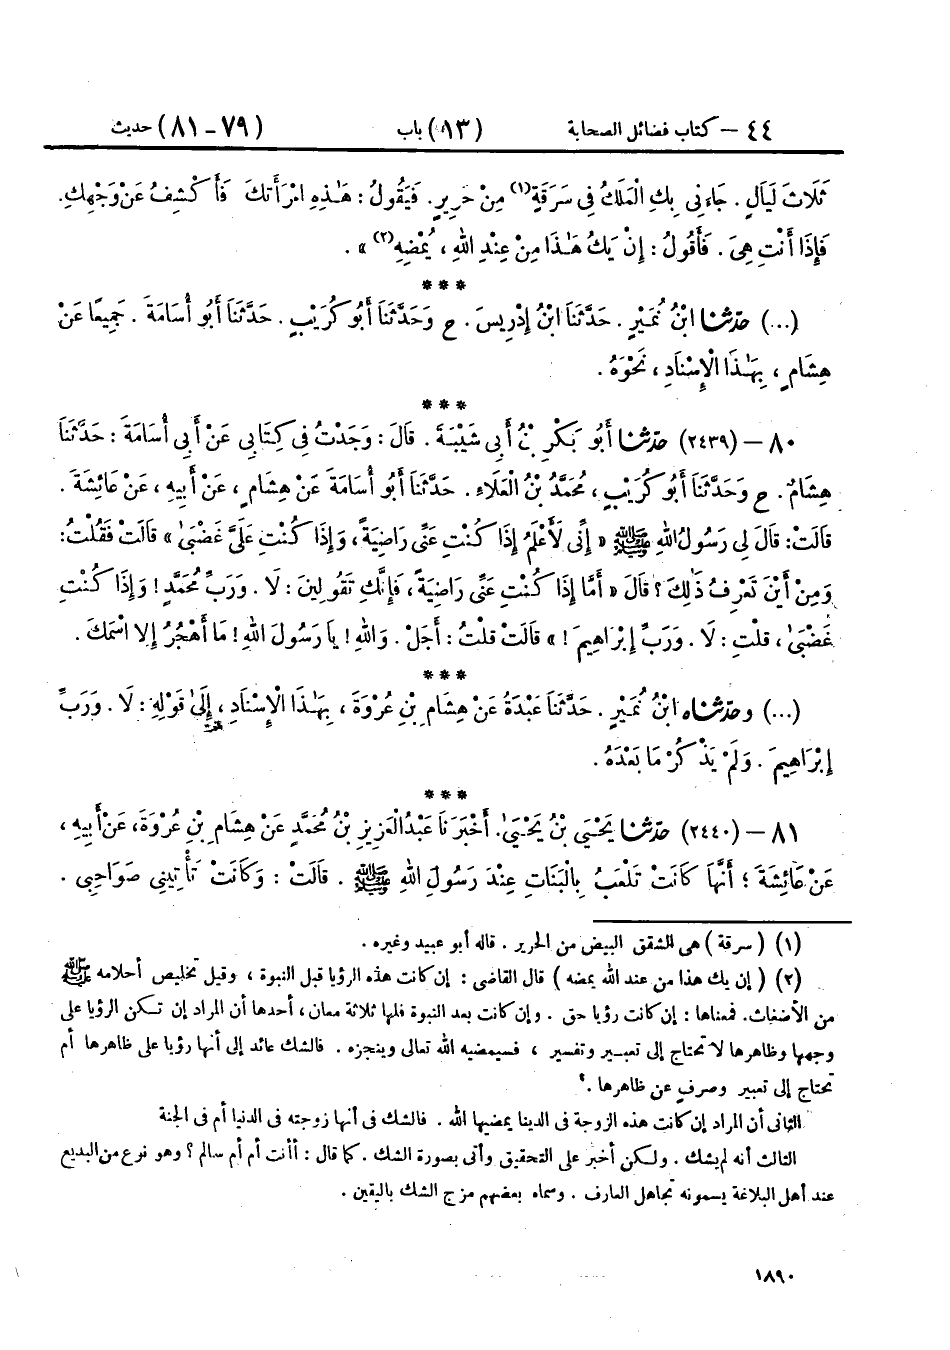 ٤٤ – كتاب فضائل الصحابة (١٣) باب (٧٩-٨١) حديث
ثَلَاثَ لَيَالٍ . جَاءَنِى بِكِ الْمَلَكُ فِى سَرَقَةٍ(١) مِنْ حَرِيرٍ. فَيَقُولُ : هَٰذِهِ امْرَأَتكَ فَأَكْشِفُ عَنْ وَجْهِكِ.
فَإِذَا أَنْتِ هِىَ . فَأَقُولُ : إِنْ يَكُ هَٰذَا مِنْ عِنْدِ اللهِ ، يُمْضِهِ(٢) » .
* * *
(...) حدّثنا ابْنُ نُمَيْرٍ . حَدَّثَنَا ابْنُ إِدْرِيسَ. ح وَحَدَّثَنَا أَبُو كُرَيْبٍ . حَدَّثَنَا أَبُو أُسَامَةَ . جَمِيعًا عَنْ
هِشَامٍ ، بِهَٰذَا الْإِسْنَادِ ، نَحْوَهُ .
* * *
٨٠ – (٢٤٣٩) حدّثنا أَبُو بَكْرِ بْنُ أَبِى شَيْبَةَ . قَالَ : وَجَدْتُ فِى كِتَابِى عَنْ أَبِى أُسَامَةَ : حَدَّثَنَا
هِشَامٌ . ح وَحَدَّثَنَا أَبُو كُرَيْبٍ ، مُحَمَّدُ بْنُ الْعَلَاءِ . حَدَّثَنَا أَبُو أُسَامَةَ عَنْ هِشَامٍ ، عَنْ أَبِيهِ ، عَنْ عَائِشَةَ .
قَالَتْ: قَالَ لِى رَسُولُ اللهِ ﷺ « إِنِّى لَأَعْلَمُ إِذَا كُنْتِ عَنِّى رَاضِيَةً ، وَإِذَا كُنْتِ عَلَىَّ غَضْبَىٰ » قَالَتْ فَقُلْتُ:
وَمِنْ أَيْنَ تَعْرِفُ ذَٰلِكَ ؟ قَالَ « أَمَّا إِذَا كُنْتِ عَنِّى رَاضِيَةً ، فَإِنَّكِ تَقُولِينَ : لَا . وَرَبِّ مُحَمَّدٍ ! وَإِذَا كُنْتِ
غَضْبَىٰ ، قُلْتِ : لَا . وَرَبِّ إِبْرَاهِيمَ ! » قَالَتْ قُلْتُ : أَجَلْ . وَاللهِ ! يَا رَسُولَ اللهِ ! مَا أَهْجُرُ إِلَّا اسْمَكَ .
* * *
(...) وحدّثناه ابْنُ نُمَيْرٍ . حَدَّثَنَا عَبْدَةُ عَنْ هِشَامِ بْنِ عُرْوَةَ ، بِهَٰذَا الْإِسْنَادِ ، إِلَىٰ قَوْلِهِ : لَا . وَرَبِّ
إِبْرَاهِيمَ . وَلَمْ يَذْكُرْ مَا بَعْدَهُ .
* * *
٨١ – (٢٤٤٠) حدّثنا يَحْيَىٰ بْنُ يَحْيَىٰ. أَخْبَرَنَا عَبْدُ الْعَزِيزِ بْنُ مُحَمَّدٍ عَنْ هِشَامِ بْنِ عُرْوَةَ، عَنْ أَبِيهِ ،
عَنْ عَائِشَةَ ؛ أَنَّهَا كَانَتْ تَلْعَبُ بِالْبَنَاتِ عِنْدَ رَسُولِ اللهِ ﷺ . قَالَتْ : وَكَانَتْ تَأْتِينِى صَوَاحِبِى .
(١) ( سرقة ) هى الشقق البيض من الحرير . قاله أبو عبيد وغيره .
(٢) ( إن يك هذا من عند الله يمضه ) قال القاضى : إن كانت هذه الرؤيا قبل النبوة ، وقبل تخليص أحلامه ﷺ
من الأضغاث. فمعناها : إن كانت رؤيا حق . وإن كانت بعد النبوة فلها ثلاثة معان، أحدها أن المراد إن تكن الرؤيا على
وجهها وظاهرها لا تحتاج إلى تعبير وتفسير ، فسيمضيه الله تعالى وينجزه . فالشك عائد إلى أنها رؤيا على ظاهرها أم
تحتاج إلى تعبير وصرف عن ظاهرها .
الثانى أن المراد إن كانت هذه الزوجة فى الدينا يمضها الله . فالشك فى أنها زوجته فى الدنيا أم فى الجنة
الثالث أنه لم يشك . ولكن أخبر على التحقيق وأتى بصورة الشك . كما قال : أأنت أم أم سالم ؟ وهو نوع من البديع
عند أهل البلاغة يسمونه تجاهل العارف . وسماه بعضهم مزج الشك باليقين .
١٨٩٠